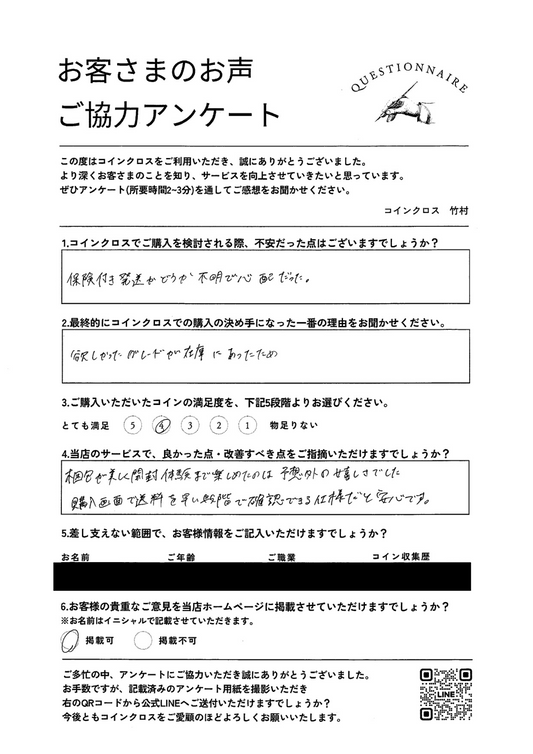 お客さまのお声
ご協力アンケート
QUESTIONNAIRE
この度はコインクロスをご利用いただき、誠にありがとうございました。
より深くお客さまのことを知り、サービスを向上させていきたいと思っています。
ぜひアンケート(所要時間2~3分)を通してご感想をお聞かせください。
コインクロス 竹村
1.コインクロスでご購入を検討される際、不安だった点はございますでしょうか？
保険付き発送かどうか不明で心配だった。
2.最終的にコインクロスでの購入の決め手になった一番の理由をお聞かせください。
欲しかったグレードが在庫にあったため
3.ご購入いただいたコインの満足度を、下記5段階よりお選びください。
とても満足 5 4 3 2 1 物足りない
4.当店のサービスで、良かった点・改善すべき点をご指摘いただけますでしょうか？
梱包が美しく開封体験まで楽しめたのは予想外の嬉しさでした
購入画面で送料を早い段階で確認できる仕様だと安心です。
5.差し支えない範囲で、お客様情報をご記入いただけますでしょうか？
お名前 ご年齢 ご職業 コイン収集歴
6.お客様の貴重なご意見を当店ホームページに掲載させていただけますでしょうか？
※お名前はイニシャルで記載させていただきます。
掲載可 掲載不可
ご多忙の中、アンケートにご協力いただき誠にありがとうございました。
お手数ですが、記載済みのアンケート用紙を撮影いただき
右のQRコードから公式LINEへご送付いただけますでしょうか？
今後ともコインクロスをご愛顧のほどよろしくお願いいたします。
LINE